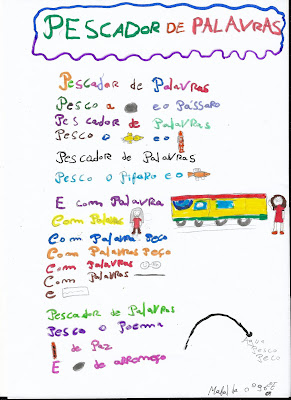 PESCADOR DE PALAVRAS
Pescador de Palavras
Pesco a e o Pássaro
Pescador de Palavras
Pesco o e o
Pescador de Palavras
Pesco o Pífaro e o
E com Palavra
Com Palavras
Com Palavra Peço
Com Palavras Peço
Com Palavras
Com Palavras
E
Pescador de Palavras
Pesco o Poema
de Paz
E de arremeço